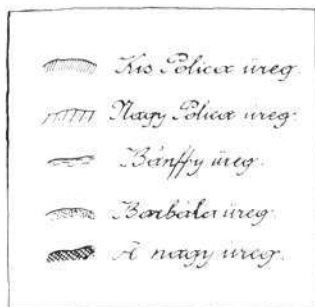 Kis Polica üreg.
Nagy Polica üreg.
Bánffy üreg.
Borbála üreg.
A nagy üreg.